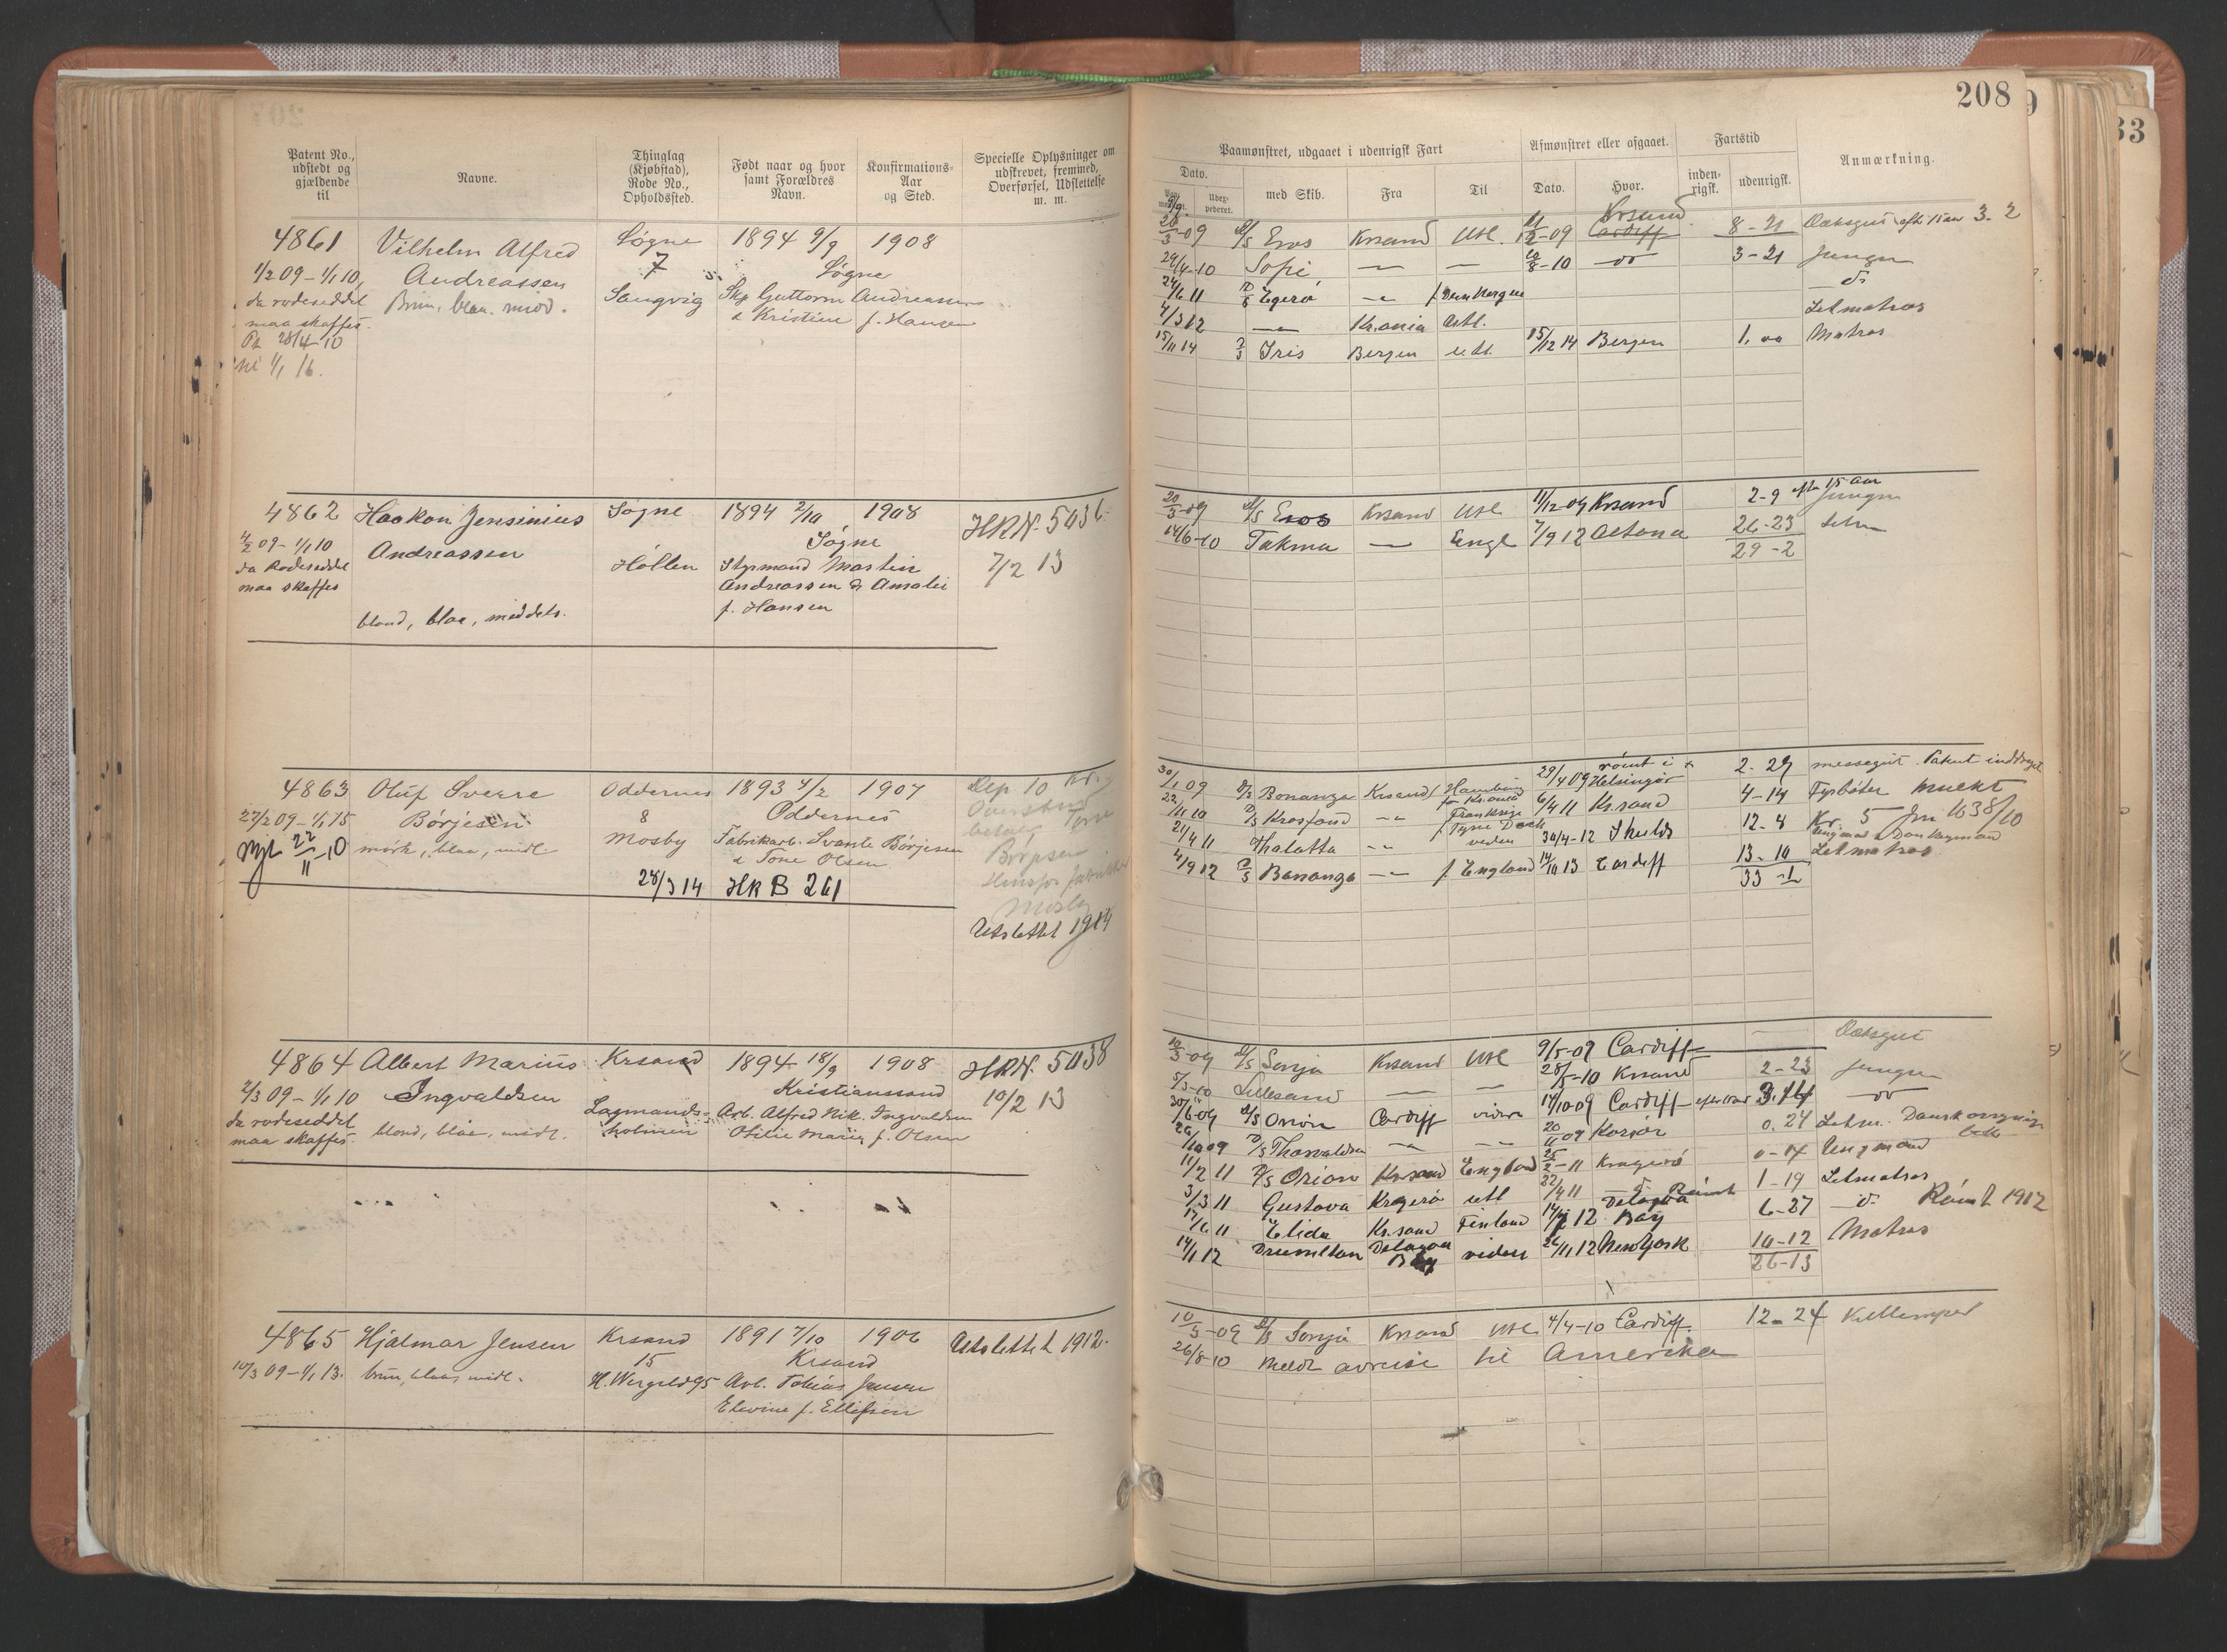 208
33
Patent No., udstedt og gjældende til
Navne.
Thinglag (Kjøbstad), Rode No., Opholdssted.
Født naar og hvor samt Forældres Navn.
Konfirmations-Aar og Sted.
Specielle Oplysninger om udskrevet, fremmed, Overførsel, Udslettelse m. m.
Paamønstret, udgaaet i udenrigsk Fart
Afmønstret eller afgaaet.
Fartstid
Anmærkning.
Dato.
med Skib.
Fra
Til
Dato.
Hvor.
inden-rigsk.
udenrigsk.
4861 Vilhelm Alfred Søgne 1894 9/9 1908
1/2 09 – 1/1 10 Andreassen 7 Søgne
da rodeseddel Brun, blaa, midd. Langvig Skp. Guttorm Andreassen
maa skaffes. & Kristine f. Hansen
28/4-10
1/1 16.
D/S Eros Krsand Utl. -09 Cardiff Krsund 8-21 Dæksgut efter 15 aar 3-2
29/4-10 Sofie — — 8-10 do 3-21 Jungm
24/6 11 Egerø — d
4/3 12 — Kr.ania Utl. Letmatros
15/11 14 D/S Iris Bergen utl. 15/12 14 Bergen 1.00 Matros
4862 Haakon Jensinius Søgne 1894 2/10 1908 HRN. 5036
4/2 09 – 1/1 10 Andreassen Søgne 7/2 13
da Rodeseddel Høllen Styrmand Martin
maa skaffes Andreassen & Amalie
blond, blaa, middels. f. Hansen
20/3-09 D/S Eros Krsand Utl 11/12-09 Krsand 2-9 efter 15 aar Jungm
14/6-10 Takma — Engl 7/9 12 Altona 26-23 Letm
29-2
4863 Oluf Sverre Oddernes 1893 4/2 1907 Dep 10 Kr.
27/2 09 – 1/1 15 Børjesen 8 Oddernes
22/11-10 mørk, blaa, midl Mosby Fabrikarb. Svante Børjesen
& Tone Olsen
28/3 14 HR B 261
Børjesen
Mosby
Utslettet 1914
30/1 09 D/S Bonanza Krsand Hamburg 29/4 09 rømt i Helsingør 2-29 messegut. Patent inddraget
22/11 10 D/S Krosfond — Frankrige 6/4 11 Kr.sand 4-14 Fyrbøter mulkt
21/4 11 Thalatta — f. Tyne Dock 30/4-12 Shields 12-4 Kr. 5 Jnr 1638/10
4/9 12 D/S Bonanza — f. England 14/10 13 Cardiff 13-10 Letmatros
33-1
4864 Albert Marius Krsand 1894 18/9 1908 HRN. 5038
2/3 09 – 1/1 10 Ingvaldsen Kristianssand 10/2 13
da rodeseddel Lagmands- Arb. Alfred Nik. Ingvaldsen
maa skaffes. blond, blaa, midl. holmen Otilie Marie f. Olsen
10/3-09 D/S Sonja Krsand Utl 9/5-09 Cardiff — Dæksgut
5/3-10 Lillesand — — 28/5-10 Krsand 2-23 Jungm
30/6-09 D/S Orion Cardiff videre 14/10-09 Cardiff do
26/10 09 D/S Thorvaldsen — — 20/11 09 Korsør 0.24 Letm. Dansk
11/2 11 D/S Orion Kr.sand England 25/2-11 Kragerø 0-14 Ungmand
3/3 11 Gustava Kragerø utl 22/4 11 — 1-19 Letmatros
17/6 11 Elida Kr.sand Finland 12 Delagoa Bay Rømt 6-27 — d. Rømt 1912
14/1 12 Drumeltan Delagoa Bay videre 26/11 12 New York 10-12 Matros
26-13
4865 Hjalmar Jensen Krsand 1891 7/10 1906 Utslettet 1912.
10/3 09 – 1/1 13. brun, blaa, midl. 15 Krsand
H. Wergeld 95 Arb. Tobias Jensen
Elevine f. Ellefsen
10/3-09 D/S Sonja Krsand Utl. 4/4-10 Cardiff. 12-24 Kullemper
26/8-10 meldt avreise til Amerika